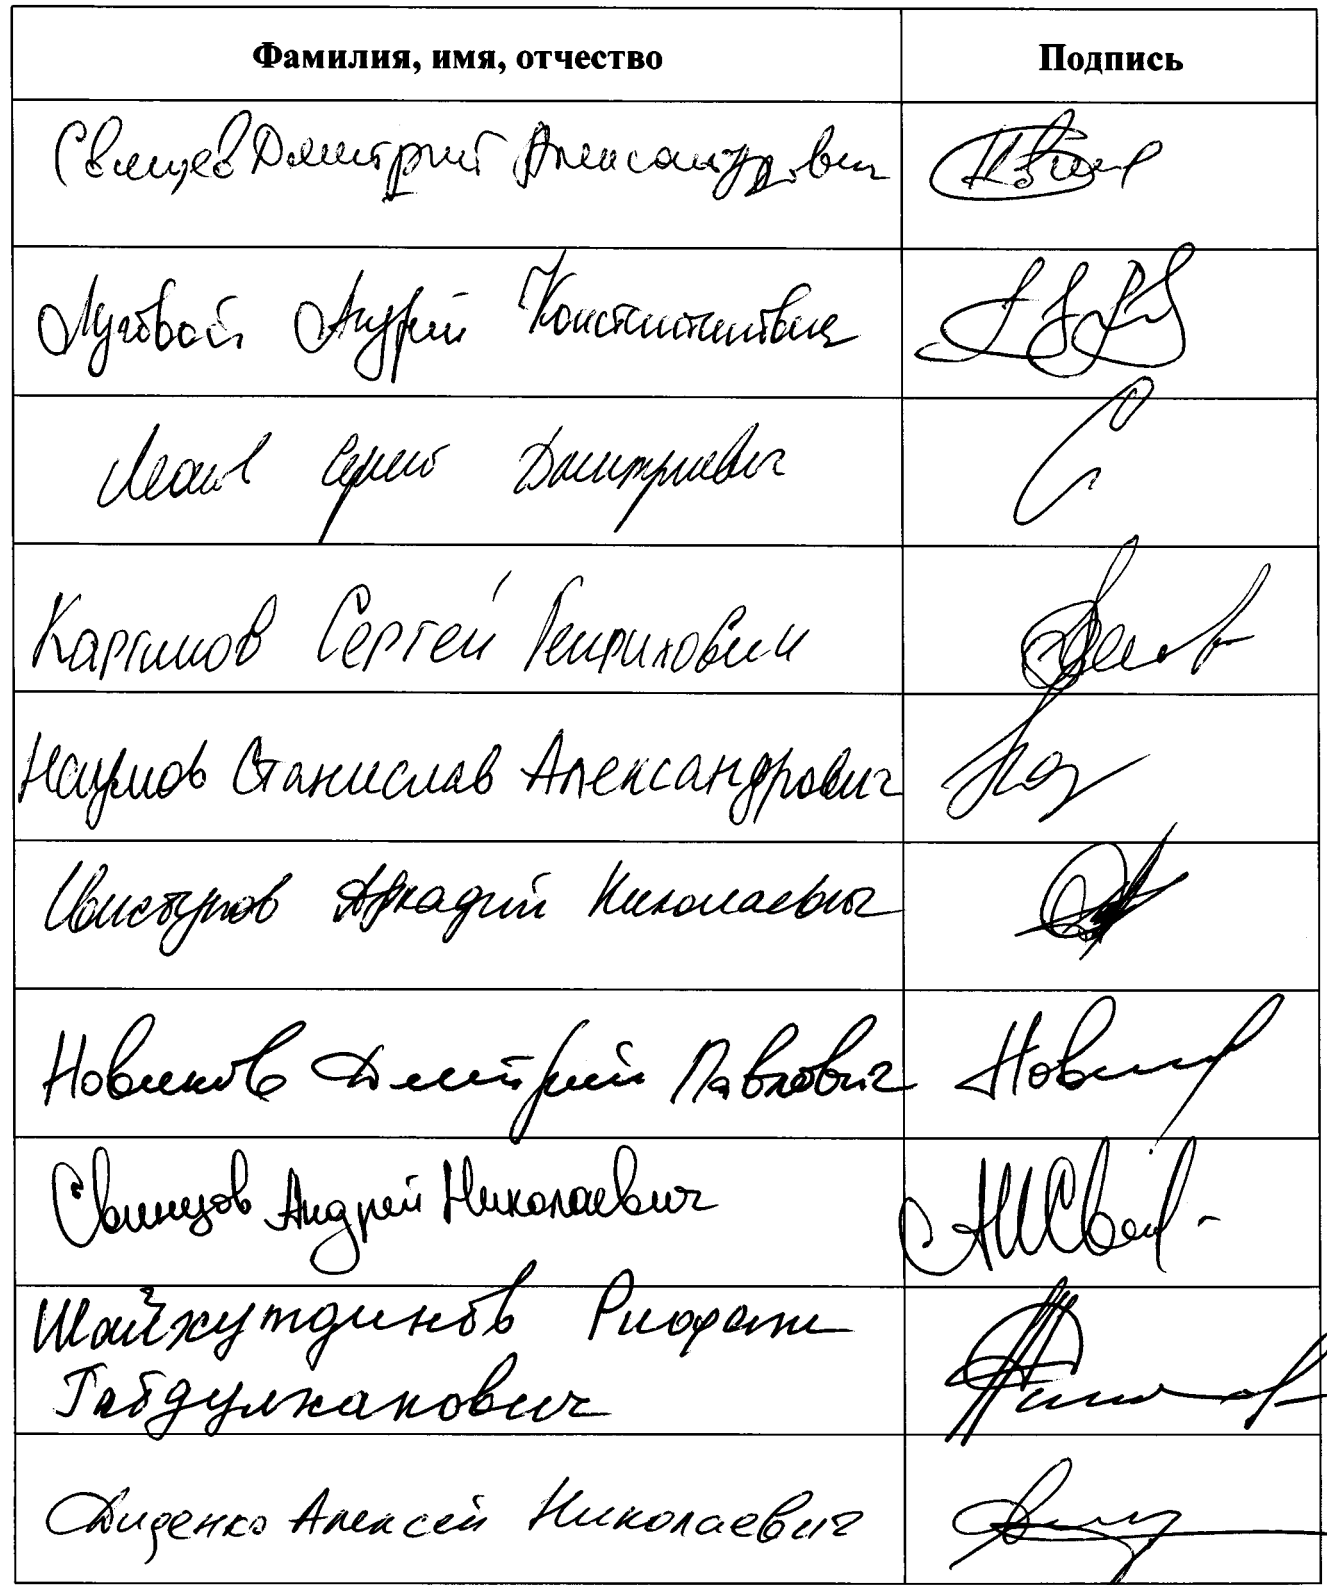 Фамилия, имя, отчество Подпись
Свищев Дмитрий Александрович
Луговой Андрей Константинович
Леонов Сергей Дмитриевич
Каргинов Сергей Генрихович
Наумов Станислав Александрович
Свистунов Аркадий Николаевич
Новиков Дмитрий Павлович Новик
Свинцов Андрей Николаевич
Шайхутдинов Рифат
Габдулханович
Диденко Алексей Николаевич